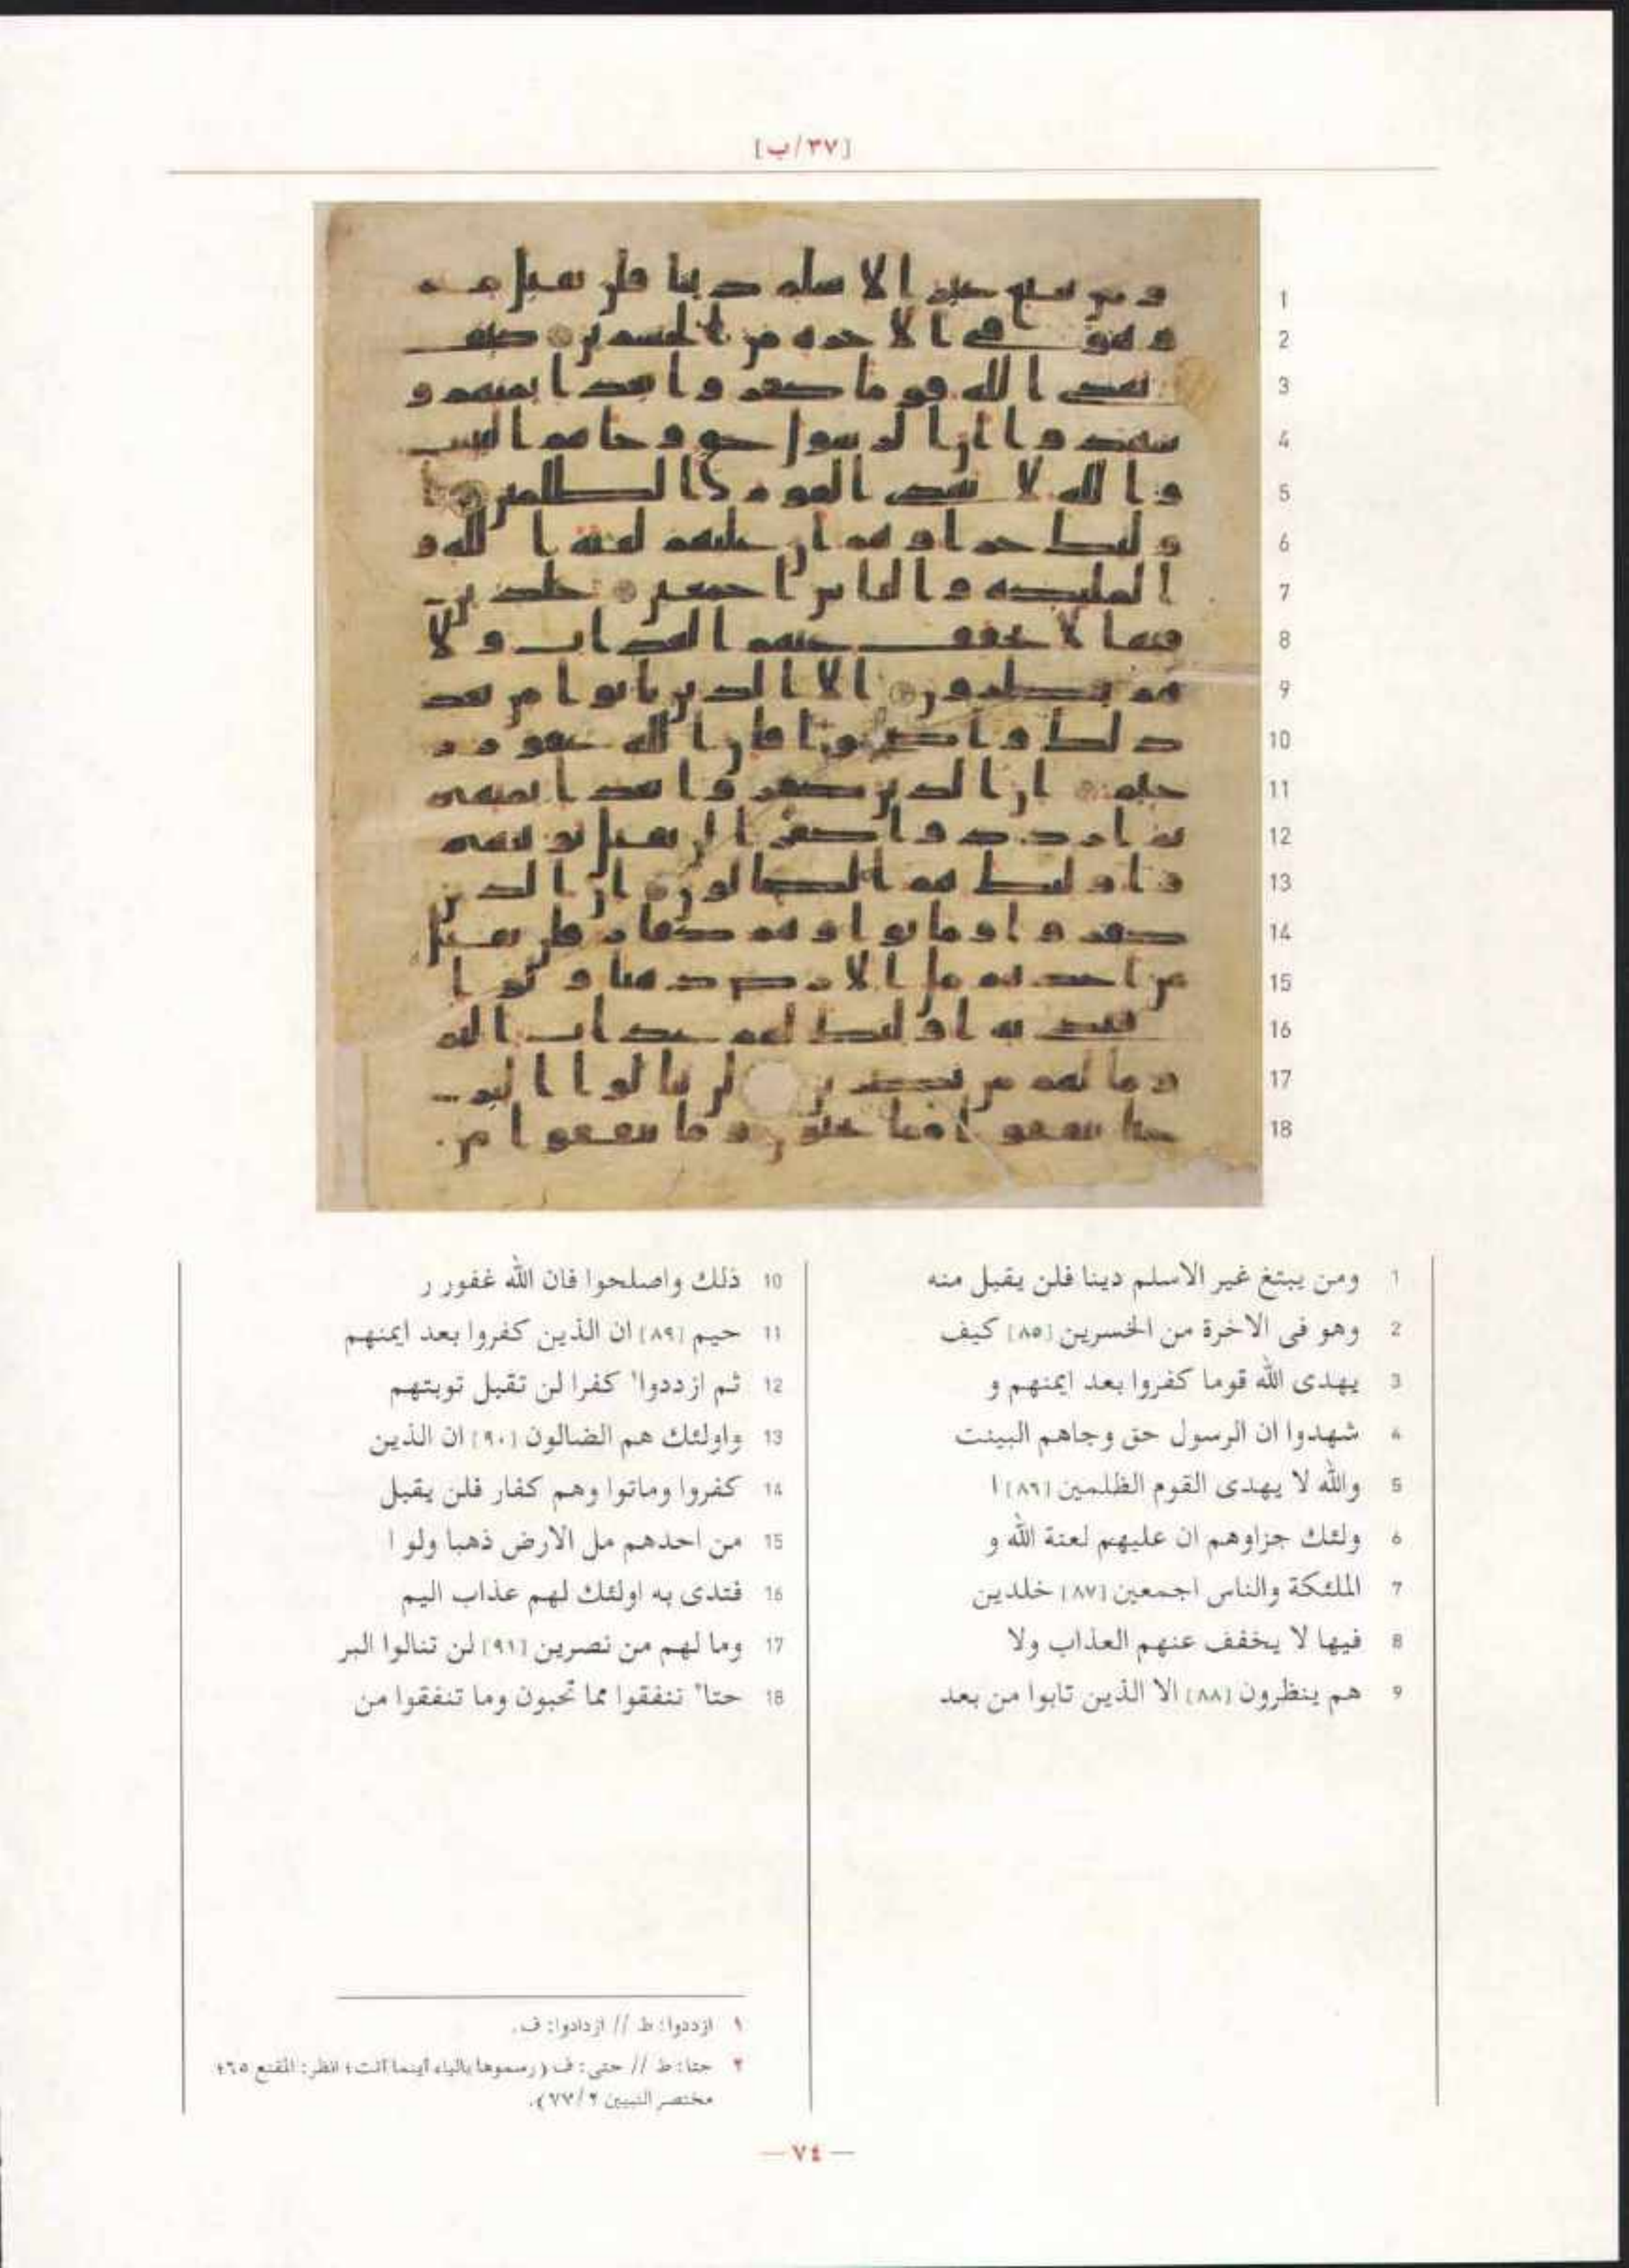 [٣٧/ب]
1 ومن يبتغ غير الاسلم دينا فلن يقبل منه
2 وهو فى الاخرة من الخسرين [٨٥] كيف
3 يهدى الله قوما كفروا بعد ايمنهم و
4 شهدوا ان الرسول حق وجاهم البينت
5 والله لا يهدى القوم الظلمين [٨٦] ا
6 ولئك جزاوهم ان عليهم لعنة الله و
7 الملئكة والناس اجمعين [٨٧] خلدين
8 فيها لا يخفف عنهم العذاب ولا
9 هم ينظرون [٨٨] الا الذين تابوا من بعد
10 ذلك واصلحوا فان الله غفور ر
11 حيم [٨٩] ان الذين كفروا بعد ايمنهم
12 ثم ازددوا١ كفرا لن تقبل توبتهم
13 واولئك هم الضالون [٩٠] ان الذين
14 كفروا وماتوا وهم كفار فلن يقبل
15 من احدهم مل الارض ذهبا ولو ا
16 فتدى به اولئك لهم عذاب اليم
17 وما لهم من نصرين [٩١] لن تنالوا البر
18 حتا٢ تنفقوا مما تحبون وما تنفقوا من
١ ازددوا: ط // ازدادوا: ف.
٢ حتا: ط // حتى: ف (رسموها بالياء أينما أتت؛ انظر: المقنع ٦٥؛
مختصر التبيين ٧٧/٢).
— ٧٤ —